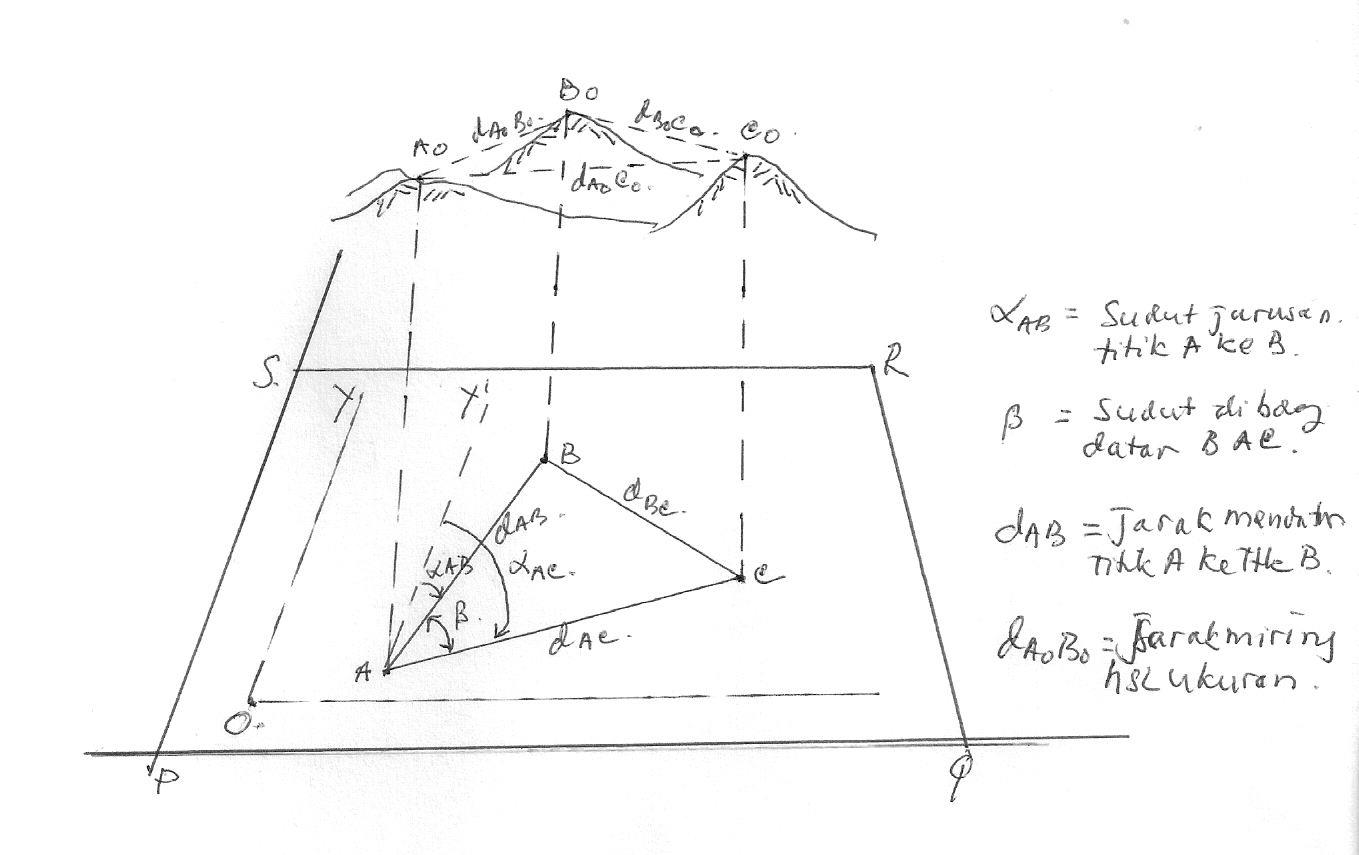 B0
dA0B0.
dB0C0.
C0.
A0
dA0C0.
S.
R
Y
Y'
B
dAB.
dBC.
αAB
αAC.
C
β.
dAC.
A
O.
P
Q
αAB = Sudut jurusan.
titik A ke B.
β = Sudut di bdg
datar BAC.
dAB = Jarak
titik A ke ttk B.
dA0B0 = Jarak miring
hsl ukuran.